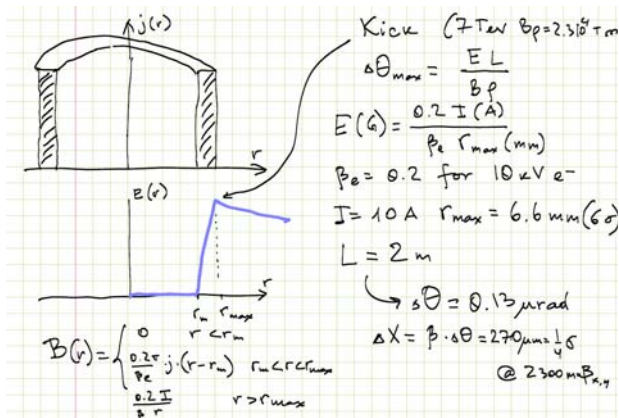 j(r)
r
E(r)
r
r_m r_max
B(r) = {
0 r < r_m
0.2π/βe j·(r-r_m) r_m<r<r_max
0.2 I/β r r > r_max
Kick (7 TeV Bρ=2.3 10⁴ T m
ΔΘ_max = E L / Bρ
E(G) = 0.2 I(A) / βe r_max(mm)
βe = 0.2 for 10 kV e-
I = 10 A r_max = 6.6 mm (6σ)
L = 2 m
ΔΘ = 0.13 μrad
ΔX = β·ΔΘ = 270 μm = 1/4 σ
@ 2300 m β_x,y